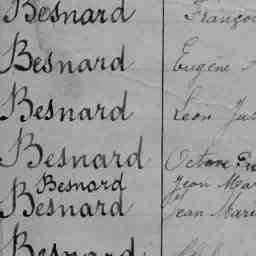 Besnard François
Besnard Eugène
Besnard Léon
Besnard Octave
Besnard Jean
Besnard Jean Marie
Besnard